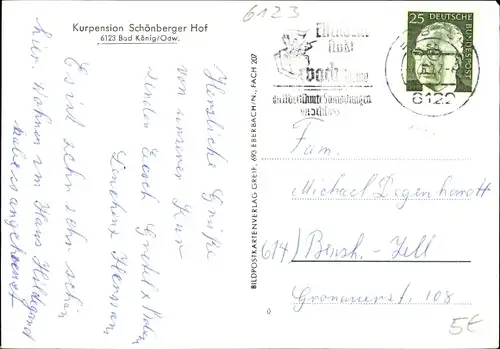 Kurpension Schönberger Hof
6123 Bad König/Odw.
6123
Herzliche Grüße
von unserer Kur
senden Euch Gretel &
Lenchen Hermann
Es ist sehr sehr schön
hier wohnen im Haus Hildegard
BILDPOSTKARTENVERLAG GREIF, 693 EBERBACH/N., FACH 207
25
DEUTSCHE BUNDESPOST
6122
Fam.
Michael Degenhardt
614) Bensh.-Zell
Gronauerst. 108
5€